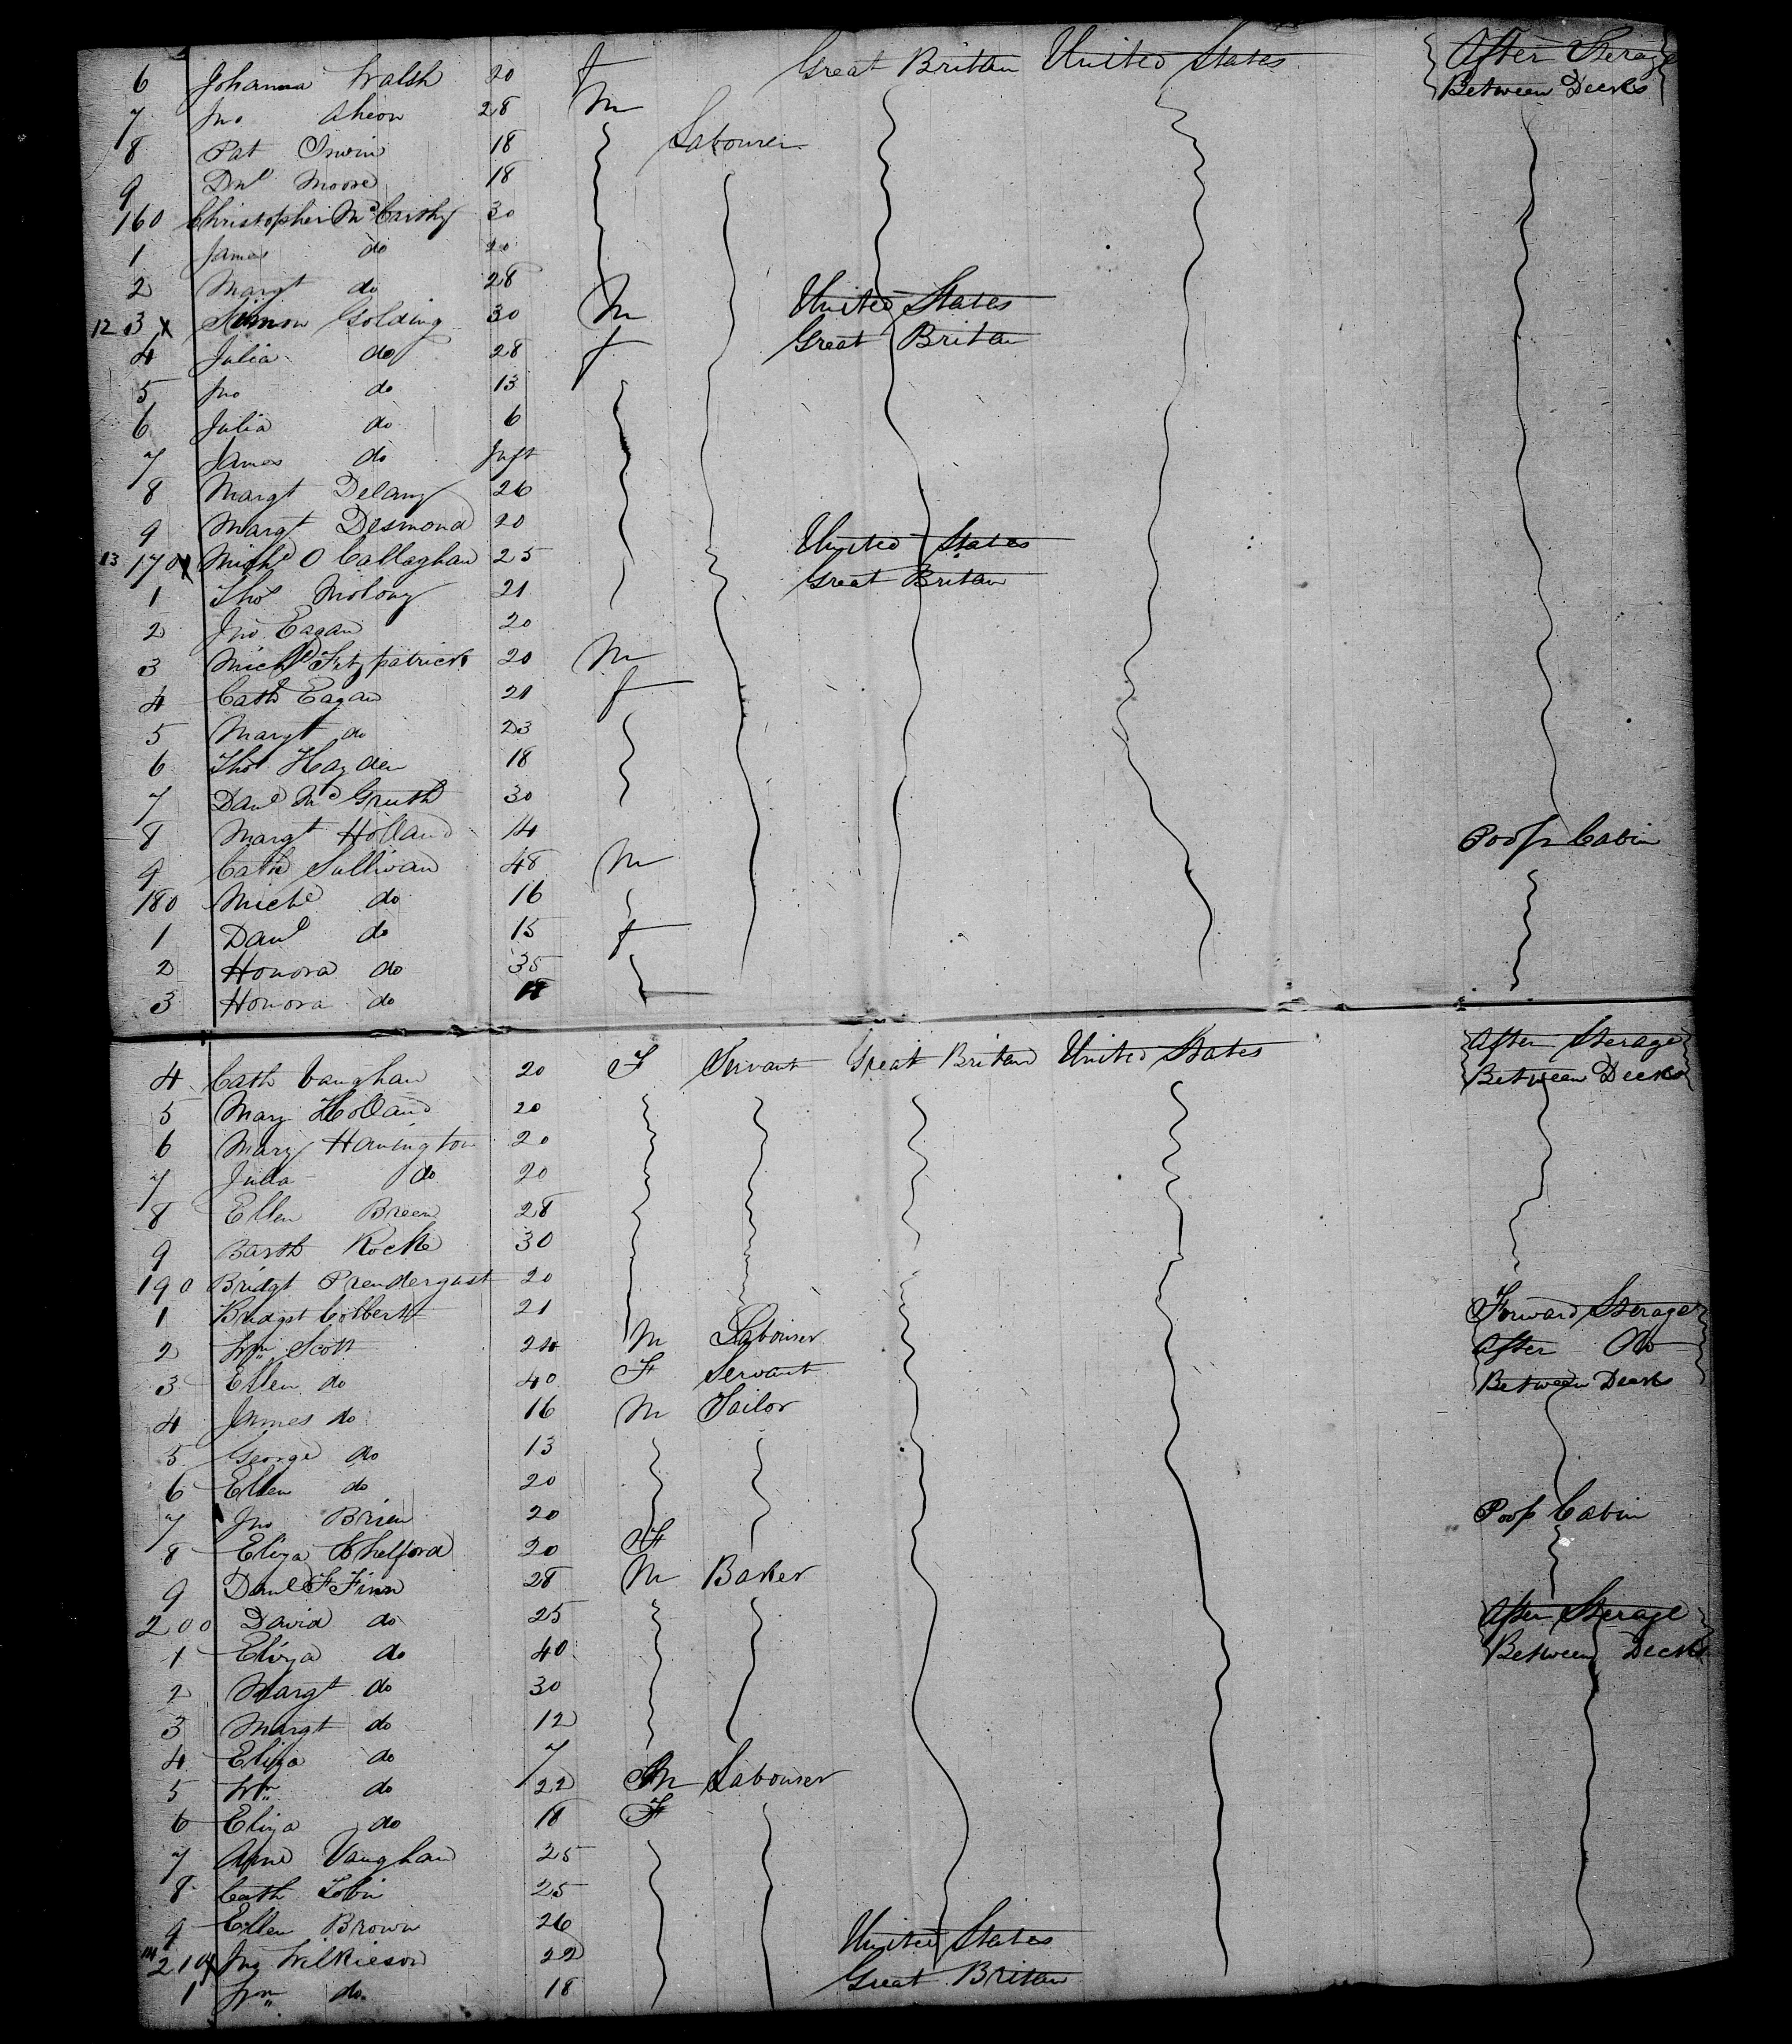 6 Johanna Walsh 20 f Great Britan United States After Sterage
7 Jno Aheon 28 m Between Decks
8 Pat Irwin 18 Labourer
9 Dnl Moore 18
160 Christopher McCarthy 30
1 James do 20
2 Margt do 28
12 3 x Simon Golding 30 m United States
4 Julia do 28 f Great Britan
5 Jno do 13
6 Julia do 6
7 James do Inft
8 Margt Delany 26
9 Margt Desmond 20
13 170 x Michl O Callaghan 25 United States
1 Thos Molony 21 Great Britan
2 Jno Eagan 20
3 Michl Fitzpatrick 20 m
4 Cath Eagan 21 f
5 Margt do 23
6 Thos Hayden 18
7 Danl Mc Grath 30
8 Margt Holland 14 Poop Cabin
9 Cath Sullivan 48 m
180 Michl do 16
1 Danl do 15 f
2 Honora do 35
3 Honora do 18
4 Cath Vaughan 20 F Servant Great Britan United States After Sterage
5 Mary Holland 20 Between Decks
6 Mary Hanington 20
7 Julia do 20
8 Ellen Breen 28
9 Barth Roche 30
190 Bridgt Prendergast 20
1 Bridgt Colbert 21 Forward Sterage
2 Wm Scott 24 M Labourer After Do
3 Ellen do 40 F Servant Between Decks
4 James do 16 M Tailor
5 George do 13
6 Ellen do 20
7 Jno Brien 20 Poop Cabin
8 Eliza Shelford 20 F
9 Danl F Finn 28 M Baker
200 David do 25 After Sterage
1 Eliza do 40 Between Decks
2 Margt do 30
3 Margt do 12
4 Eliza do 7
5 Wm do 22 M Labourer
6 Eliza do 18 F
7 Ann Vaughan 25
8 Cath Tobin 25
9 Ellen Brown 26
14 210 x Jno Wilkieson 22 United States
1 Wm do 18 Great Britan